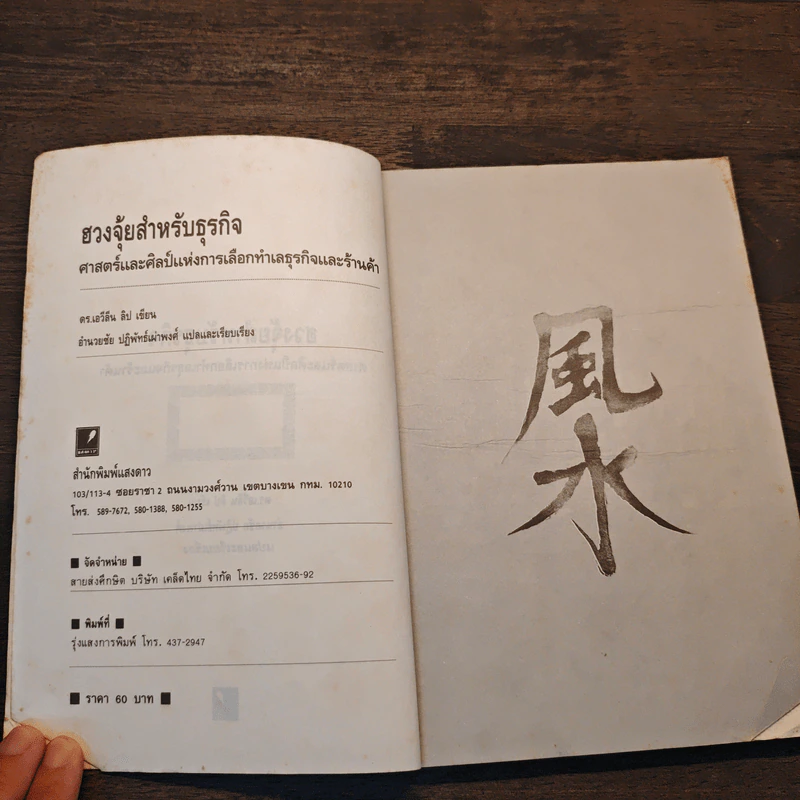 ฮวงจุ้ยสำหรับธุรกิจ
ศาสตร์และศิลป์แห่งการเลือกทำเลธุรกิจและร้านค้า
ดร.เอวีลีน ลิป เขียน
อำนวยชัย ปฏิพัทธ์เผ่าพงศ์ แปลและเรียบเรียง
สำนักพิมพ์แสงดาว
103/113-4 ซอยราชา 2 ถนนงามวงศ์วาน เขตบางเขน กทม. 10210
โทร. 589-7672, 580-1388, 580-1255
■ จัดจำหน่าย ■
สายส่งศึกษิต บริษัท เคล็ดไทย จำกัด โทร. 2259536-92
■ พิมพ์ที่ ■
รุ่งแสงการพิมพ์ โทร. 437-2947
■ ราคา 60 บาท ■
風
水